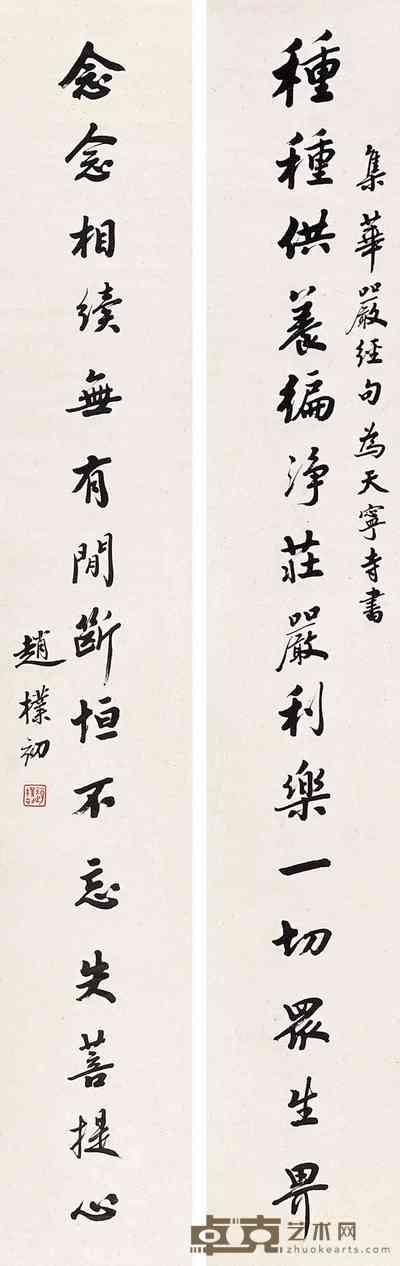 集華嚴經句為天寧寺書
種種供養徧淨莊嚴利樂一切眾生界
念念相續無有閒斷恒不忘失菩提心
趙樸初
卓克艺术网
zhuokearts.com